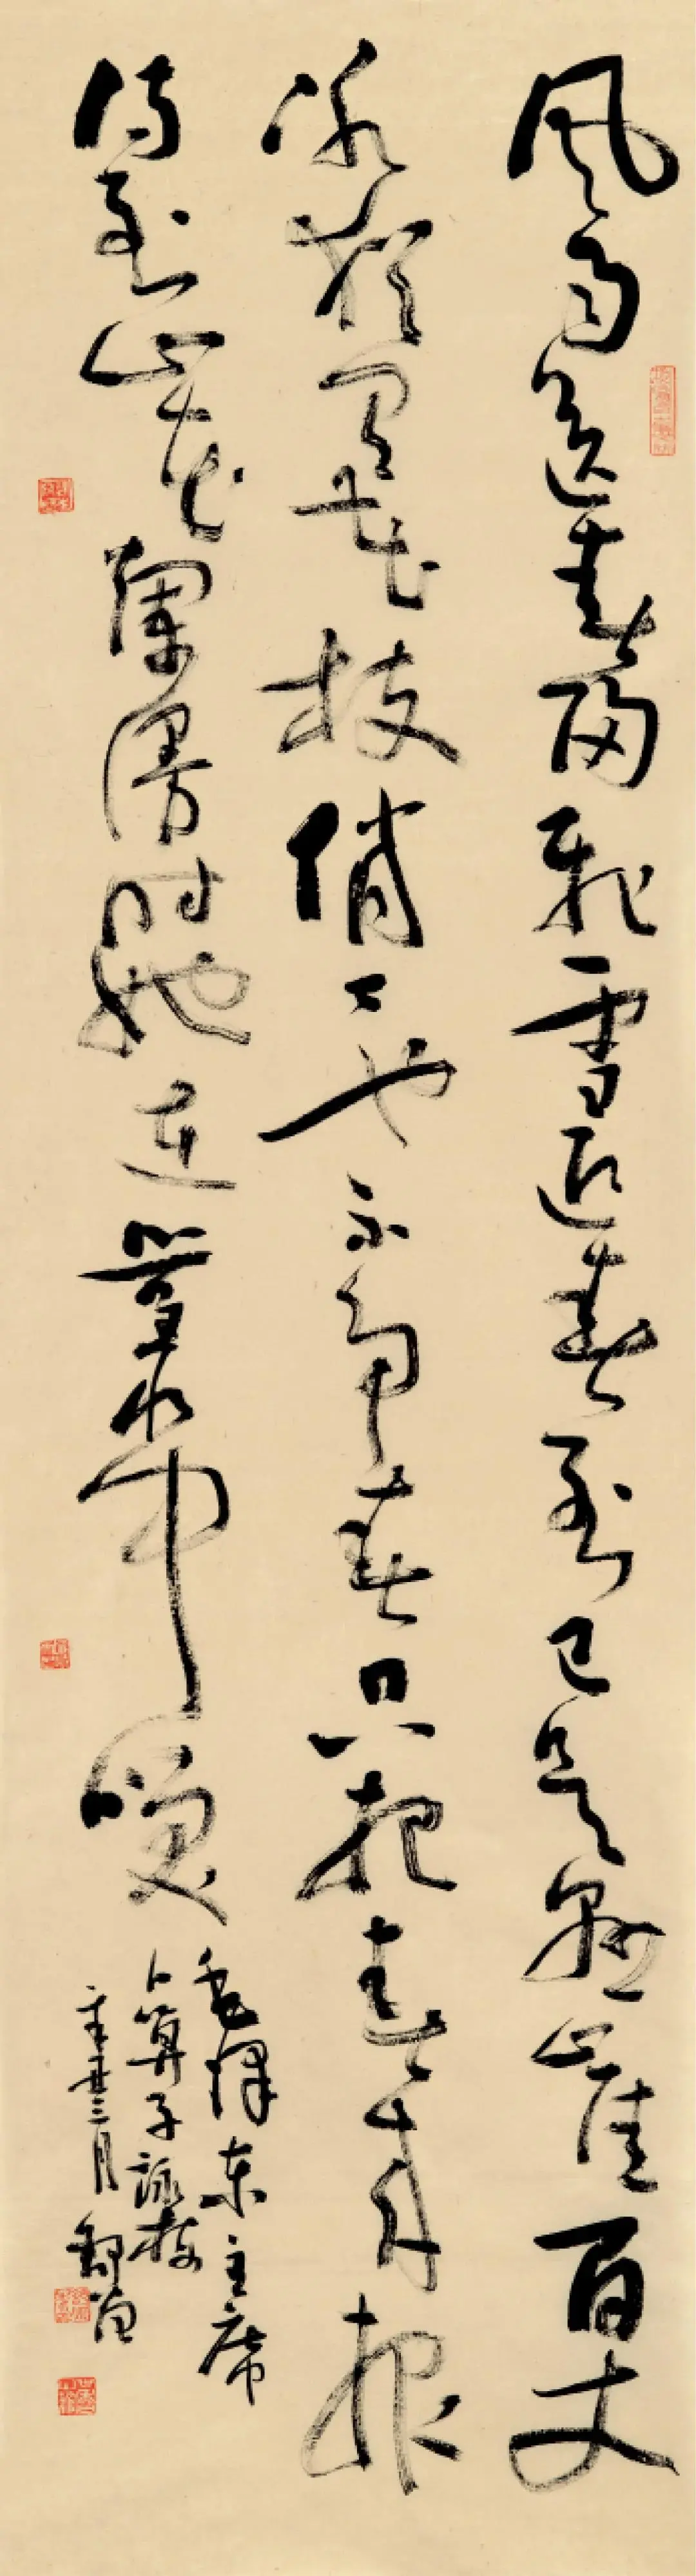 風雨送春歸飛雪迎春到已是懸崖百丈
冰猶有花枝俏〻也不争春只把春来報
待到山花爛漫時她在叢中咲
毛澤東主席
卜算子詠梅
辛丑三月